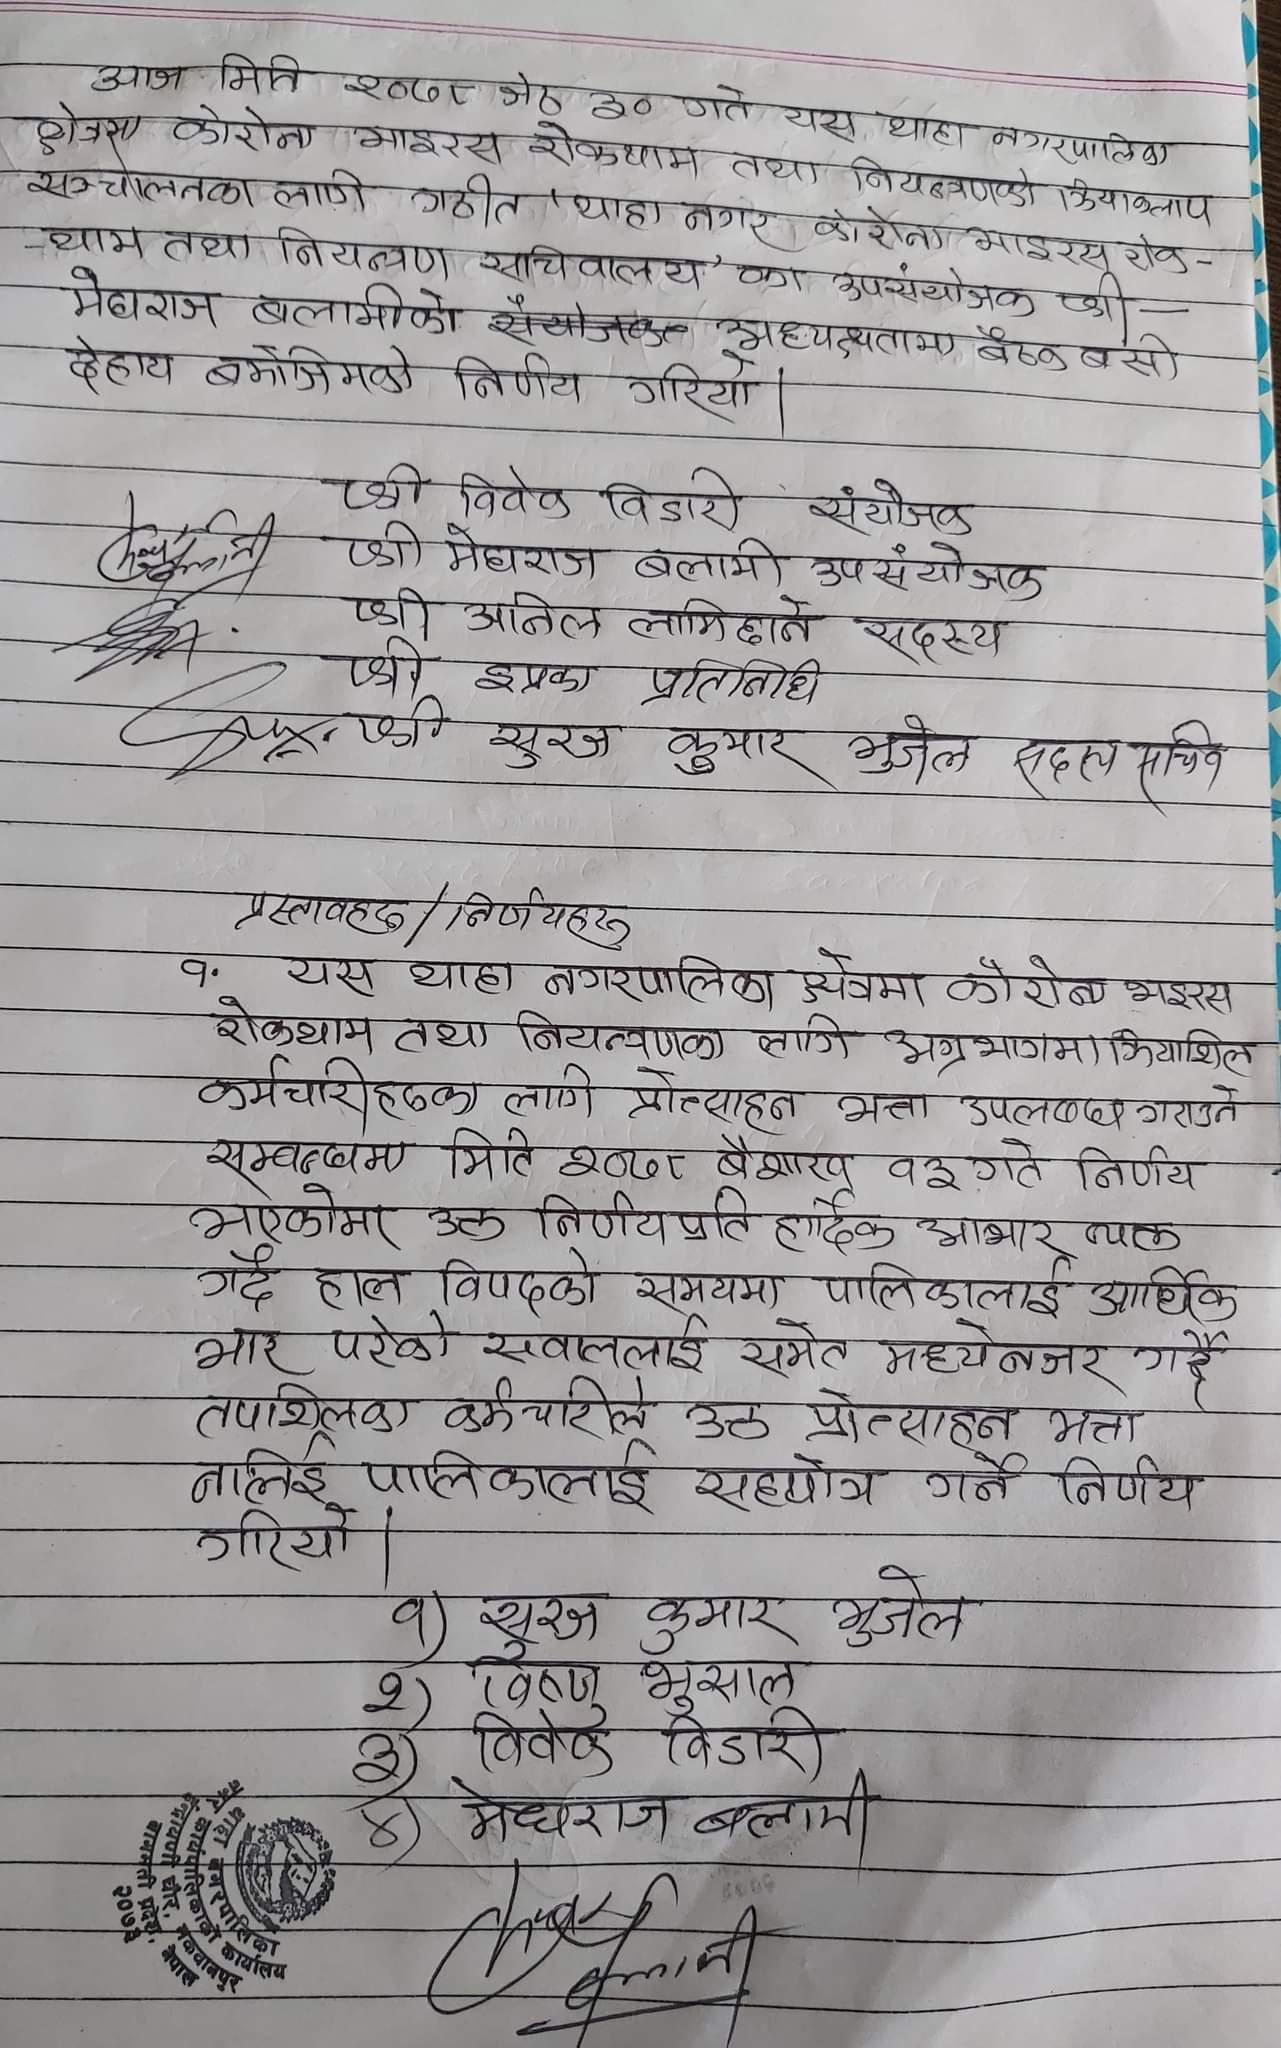 आज मिति २०७८ जेठ ३० गते यस थाहा नगरपालिका
क्षेत्रमा कोरोना भाइरस रोकथाम तथा नियन्त्रणको क्रियाकलाप
सञ्चालनका लागी गठीत 'थाहा नगर कोरोना भाइरस रोक-
-थाम तथा नियन्त्रण सचिवालय' का उपसंयोजक श्री
मेघराज बलामीको संयोजक अध्यक्षतामा बैठक बसी
देहाय बमोजिमको निर्णय गरियो।
श्री विवेक विडारी संयोजक
श्री मेघराज बलामी उपसंयोजक
श्री अनिल लामिछाने सदस्य
श्री इप्रका प्रतिनिधि
श्री सुरज कुमार भुजेल सदस्य सचिव
प्रस्तावहरु/निर्णयहरु
१. यस थाहा नगरपालिका क्षेत्रमा कोरोना भाइरस
रोकथाम तथा नियन्त्रणका लागि अग्रभागमा क्रियाशिल
कर्मचारीहरुका लागि प्रोत्साहन भत्ता उपलब्ध गराउने
सम्बन्धमा मिति २०७८ बैशाख १३ गते निर्णय
भएकोमा उक्त निर्णयप्रति हार्दिक आभार व्यक्त
गर्दै हाल विपदको समयमा पालिकालाई आर्थिक
भार परेको सवाललाई समेत मध्येनजर गर्दै
तपाशिलका कर्मचारीले उक्त प्रोत्साहन भत्ता
नालिई पालिकालाई सहयोग गर्ने निर्णय
गरियो।
१) सुरज कुमार भुजेल
२) विष्णु भुसाल
३) विवेक विडारी
४) मेघराज बलामी
थाहा नगरपालिका
नगर कार्यपालिकाको कार्यालय
मकवानपुर
बागमती प्रदेश, नेपाल
२०७३
बलामी